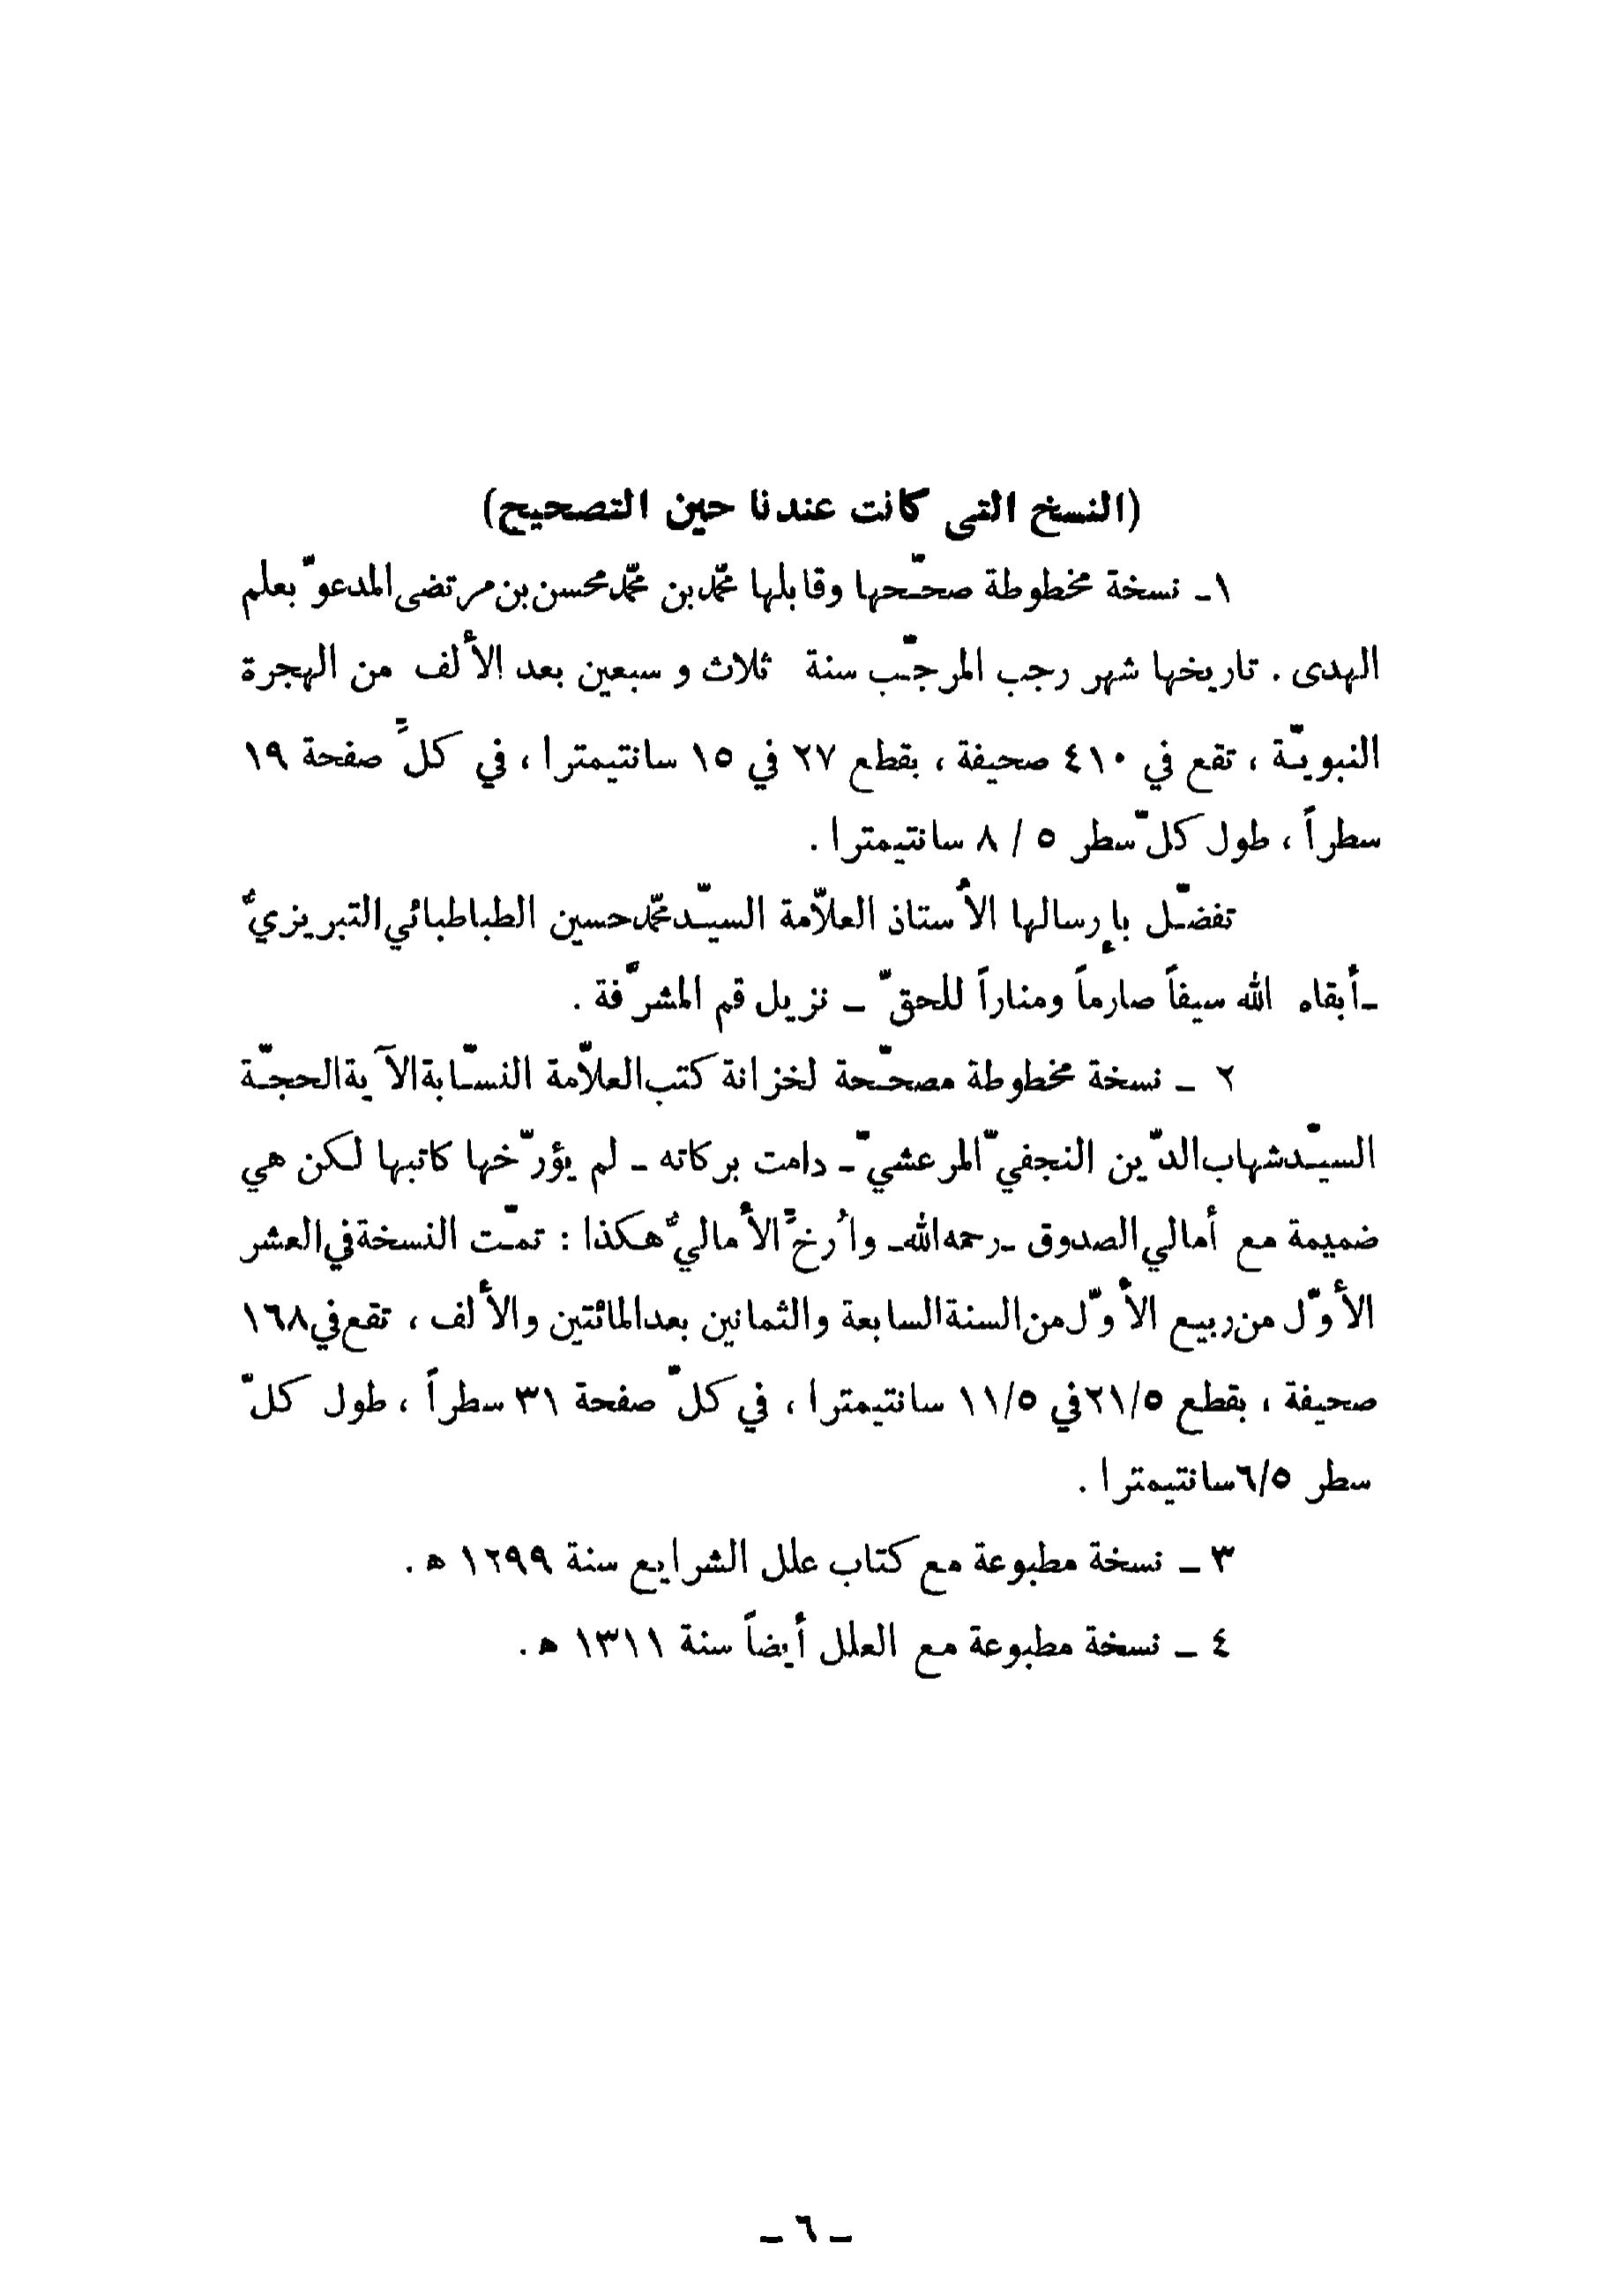 (النسخ التى كانت عندنا حين التصحيح)
١ـ نسخة مخطوطة صحّحها وقابلها محمّد بن محمّد محسن بن مرتضى المدعوّ بعلم
الهدى . تاريخها شهر رجب المرجّب سنة ثلاث و سبعين بعد الألف من الهجرة
النبويّة ، تقع في ٤١٠ صحيفة ، بقطع ٢٧ في ١٥ سانتيمترا ، في كلِّ صفحة ١٩
سطراً ، طول كلّ سطر ٥ / ٨ سانتيمترا .
تفضّل بإرسالها الأستاذ العلاّمة السيّد محمّد حسين الطباطبائي التبريزيُّ
ـ أبقاه الله سيفاً صارماً ومناراً للحقّ ـ نزيل قم المشرّفة .
٢ ـ نسخة مخطوطة مصحّحة لخزانة كتب العلاّمة النسّابة الآية الحجّة
السيّد شهاب الدّين النجفيّ المرعشيّ ـ دامت بركاته ـ لم يؤرّخها كاتبها لكن هي
ضميمة مع أمالي الصدوق ـ رحمه الله ـ واُرخِّ الأماليُّ هكذا : تمّت النسخة في العشر
الأوّل من ربيع الأوّل من السنة السابعة والثمانين بعد المائتين والألف ، تقع في ١٦٨
صحيفة ، بقطع ٢١/٥ في ١١/٥ سانتيمترا ، في كلّ صفحة ٣١ سطراً ، طول كلّ
سطر ٦/٥ سانتيمترا .
٣ ـ نسخة مطبوعة مع كتاب علل الشرايع سنة ١٢٩٩ ه .
٤ ـ نسخة مطبوعة مع العلل أيضاً سنة ١٣١١ ه .
ـ ٦ ـ